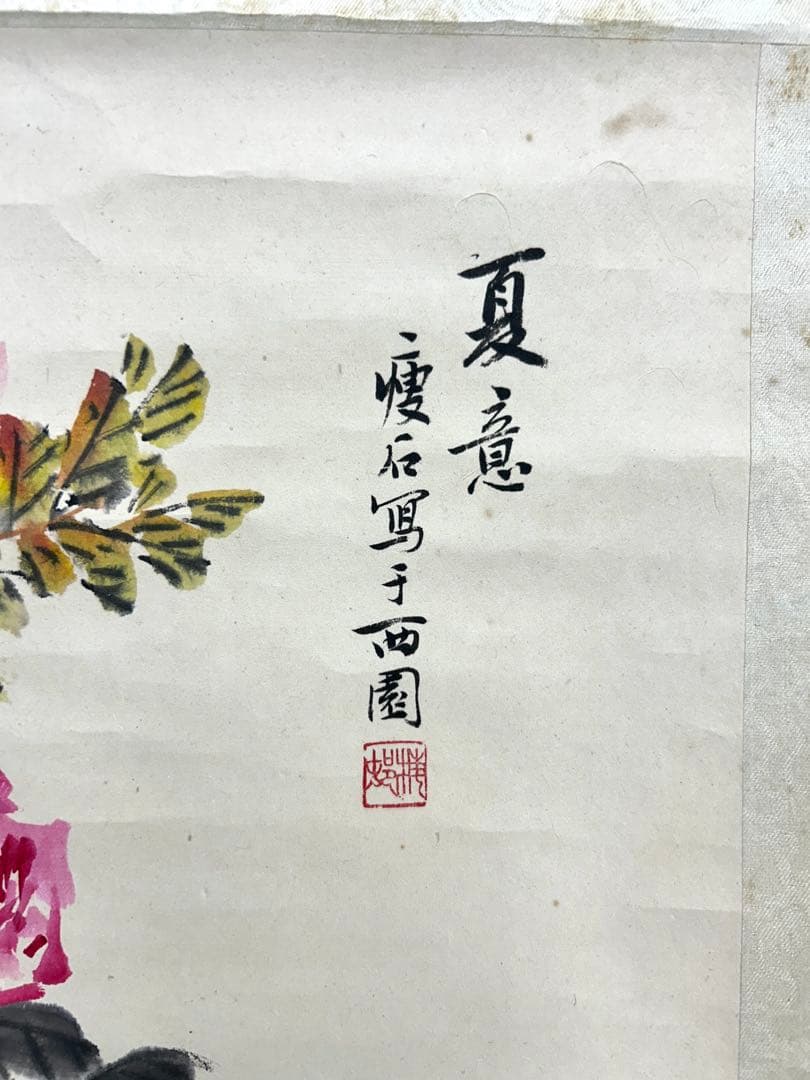 夏意
瘦石寫于西園